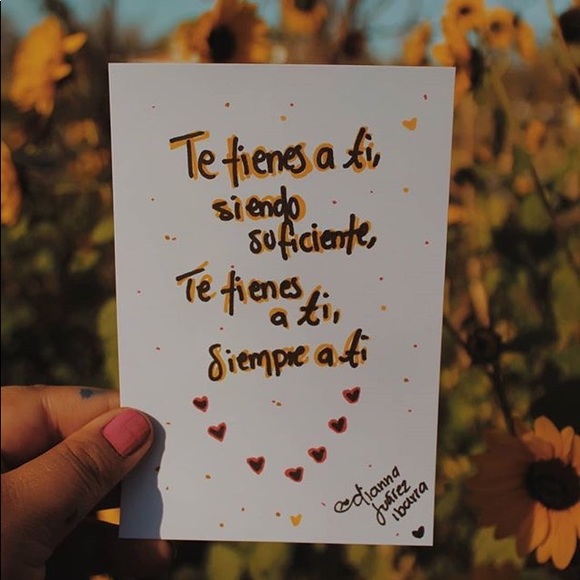 Te tienes a ti,
siendo
suficiente,
Te tienes
a ti,
siempre a ti
dianna
juárez
ibarra